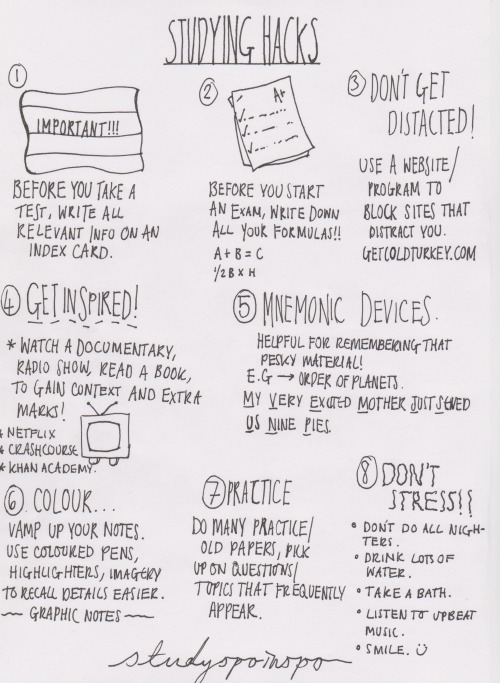 STUDYING HACKS
1
IMPORTANT!!!
BEFORE YOU TAKE A
TEST, WRITE ALL
RELEVANT INFO ON AN
INDEX CARD.
2
A+
BEFORE YOU START
AN EXAM, WRITE DOWN
ALL YOUR FORMULAS!!
A + B = C
1/2 B x H
3 DON'T GET
DISTACTED!
USE A WEBSITE/
PROGRAM TO
BLOCK SITES THAT
DISTRACT YOU.
GETCOLDTURKEY.COM
4 GET INSPIRED!
* WATCH A DOCUMENTARY,
RADIO SHOW, READ A BOOK,
TO GAIN CONTEXT AND EXTRA
MARKS!
* NETFLIX
* CRASHCOURSE
* KHAN ACADEMY.
5 MNEMONIC DEVICES.
HELPFUL FOR REMEMBERING THAT
PESKY MATERIAL!
E.G → ORDER OF PLANETS.
MY VERY EXCITED MOTHER JUST SERVED
US NINE PIES.
6 COLOUR...
VAMP UP YOUR NOTES.
USE COLOURED PENS,
HIGHLIGHTERS, IMAGERY
TO RECALL DETAILS EASIER.
~ GRAPHIC NOTES ~
7 PRACTICE
DO MANY PRACTICE/
OLD PAPERS, PICK
UP ON QUESTIONS/
TOPICS THAT FREQUENTLY
APPEAR.
8 DON'T
STRESS!!
• DON'T DO ALL NIGH-
TERS.
• DRINK LOTS OF
WATER.
• TAKE A BATH.
• LISTEN TO UPBEAT
MUSIC.
• SMILE. ☺
studyspoinspo